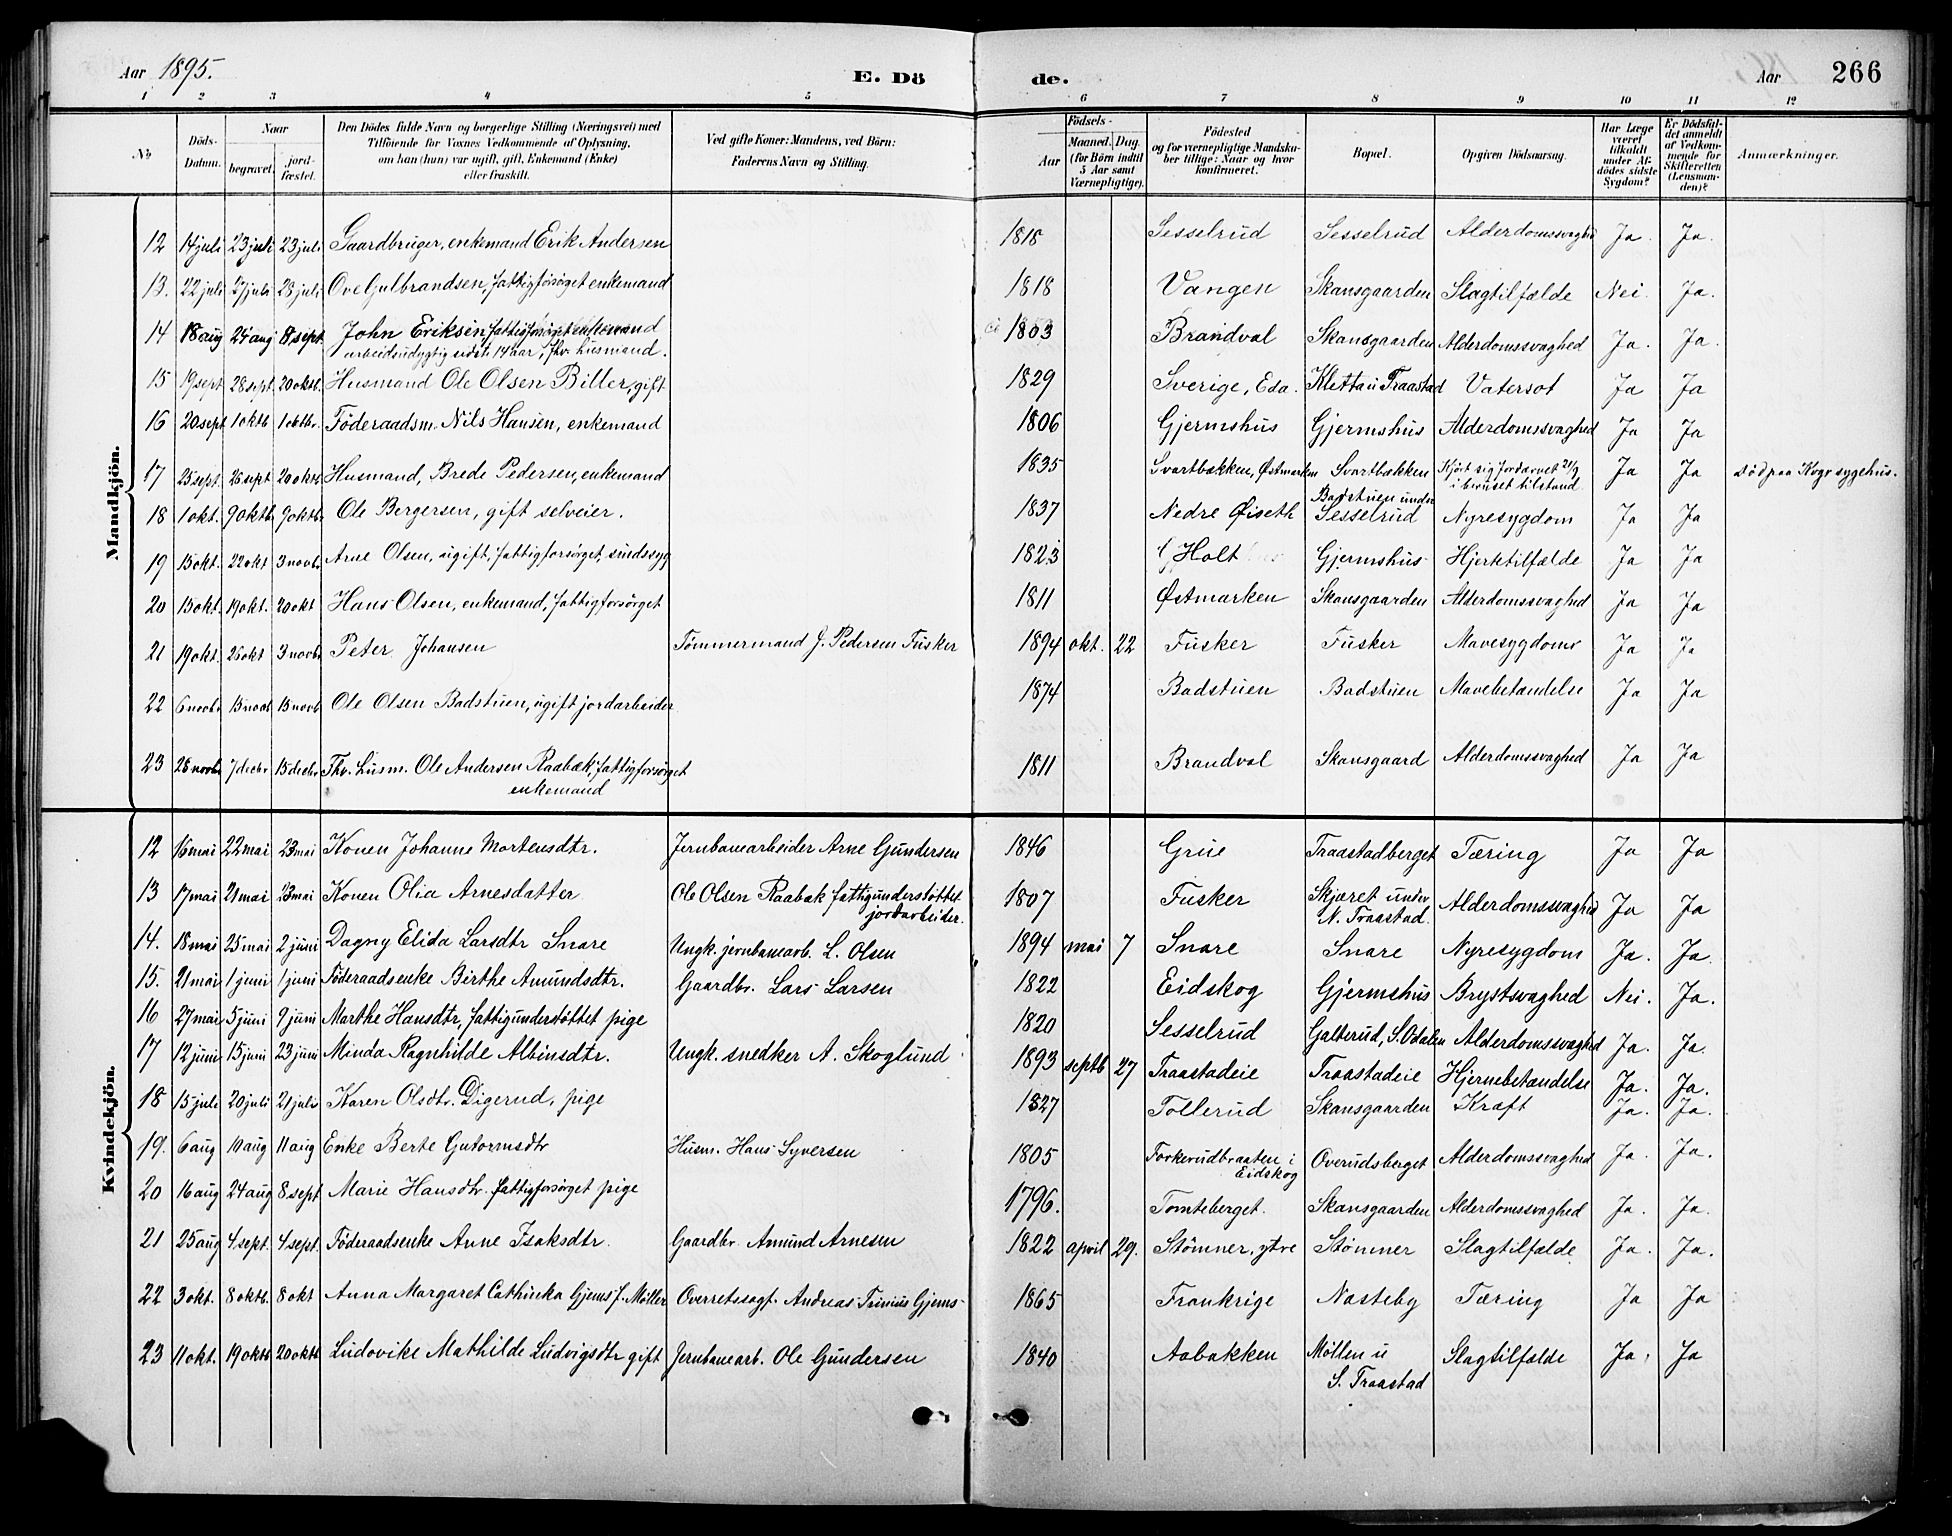 Aar 1895. E. Dö de. Aar 266
1 2 3 4 5 6 7 8 9 10 11 12
No Döds-Datum. Naar begravet. jordfæstet. Den Dödes fulde Navn og borgerlige Stilling (Næringsvei) med Tilföiende for Voxnes Vedkommende af Oplysning, om han (hun) var ugift, gift, Enkemand (Enke) eller fraskilt. Ved gifte Koner: Mandens, ved Börn: Faderens Navn og Stilling. Födsels- Aar Maaned. Dag. (for Börn indtil 5 Aar samt Værnepligtige). Födested og for værnepligtige Mandskaber tillige: Naar og hvor konfirmeret. Bopæl. Opgiven Dödsaarsag. Har Læge været tilkaldt under Afdödes sidste Sygdom? Er Dödsfaldet anmeldt af Vedkommende for Skifteretten (Lensmanden)? Anmærkninger.
Mandkjön.
12 14 juli 23 juli 23 juli Gaardbruger, enkemand Erik Andersen 1818 Sesselrud Sesselrud Alderdomssvaghed Ja. Ja.
13. 22 juli 27 juli 28 juli Ove Gulbrandsen, fattigforsørget enkemand 1818 Vangen Skansgaarden Slagtilfælde Nei. Ja.
14 18 aug 24 aug 8 sept John Eriksen fattigforsørget enkemand 1803 Brandval Skansgaarden Alderdomssvaghed Ja. Ja.
arbeidsudygtig sidste 14 aar, fhv. husmand.
15 19 sept 28 sept. 20 oktb. Husmand Ole Olsen Biller, gift 1829 Sverige, Eda. Kletta u Traastad Vatersot Ja Ja
16 20 sept 1 oktb 1 oktbr. Føderaadsm. Nils Hansen, enkemand 1806 Gjermshus Gjermshus Alderdomssvaghed Ja Ja
17 25 sept. 26 sept 20 oktb Husmand, Brede Pedersen, enkemand 1835 Svartbækken, Østmarken Svartbækken Kjørt sig fordærvet 21/9 i beruset tilstand. Ja Ja død paa Kvgr sygehus.
18 1 okt. 9 oktb. 9 oktb. Ole Bergersen, gift selveier. 1837 Nedre Øiseth Badstuen under Sesselrud Nyresygdom Ja Ja
19 15 okt. 22 okt 3 novb. Arne Olsen, ugift, fattigforsørget, sindssyg 1823 Holt Gjermshus Hjerktilfælde Ja Ja
20 15 okt. 19 okt. 20 okt Hans Olsen, enkemand, fattigforsørget 1811 Østmarken Skansgaarden Alderdomssvaghed Ja Ja
21 19 okt. 26 okt 3 novb. Peter Johansen Tømmermand J. Pedersen Fusker 1894 okt. 22 Fusker Fusker Mavesygdom Ja Ja
22 6 novb. 15 novb 15 novb Ole Olsen Badstuen, ugift jordarbeider 1874 Badstuen Badstuen Mavebetændelse Ja Ja
23 28 novb. 7 decbr 15 decbr Fhv. husm. Ole Andersen Raabæk, fattigforsørget 1811 Brandval Skansgaard Alderdomssvaghed Ja Ja
enkemand
Kvindekjön.
12 16 mai 22 mai 23 mai Konen Johanne Mortensdtr. Jernbanearbeider Arne Gundersen 1846 Grue Traastadberget Tæring Ja Ja
13 17 mai 21 mai 23 mai Konen Olia Arnesdatter Ole Olsen Raabæk fattigunderstøttet jordarbeider. 1807 Fusker Skjæret under N. Traastad. Alderdomssvaghed Ja Ja
14. 18 mai 25 mai 2 juni Dagny Elida Larsdtr Snare Ungk. jernbanearb. L. Olsen 1894 mai 7 Snare Snare Nyresygdom Ja. Ja.
15. 21 mai 1 juni 1 juni Føderaadsenke Birthe Amundsdtr. Gaardbr. Lars Larsen 1822 Eidskog Gjermshus Brystsvaghed Nei. Ja.
16 27 mai 5 juni 9 juni Marthe Hansdtr, fattigunderstøttet pige 1820 Sesselrud Galterud, S. Odalen Alderdomssvaghed Ja. Ja.
17 12 juni 15 juni 23 juni Minda Ragnhilde Albinsdtr. Ungk. snedker A. Skoglund 1893 septb 27 Traastadeie Traastadeie Hjernebetændelse Ja. Ja.
18 15 juli 20 juli 21 juli Karen Olsdtr. Digerud, pige 1827 Tollerud Skansgaarden Kræft Ja. Ja.
19. 6 aug 10 aug 11 aug Enke Berte Gutormsdtr Husm. Hans Syversen 1805 Torkerudbraaten i Eidskog Overudsberget Alderdomssvaghed Ja. Ja.
20 16 aug 24 aug 8 sept Marie Hansdtr. fattigforsørget pige 1796. Tomteberget. Skansgaarden Alderdomssvaghed Ja. Ja.
21 25 aug 4 sept. 4 sept. Føderaadsenke Anne Isaksdtr. Gaardbr. Amund Arnesen 1822 april 29. Stømner, ytre Stømner Slagtilfælde Ja. Ja.
22 3 okt. 8 oktb. 8 okt Anna Margaret Cathinka Gjems f. Møller Overretssagf. Andreas Trinius Gjems 1865 Frankrige Næsteby Tæring Ja Ja
23 11 okt. 19 oktb 20 oktb Ludovike Mathilde Ludvigsdtr gift Jernbanearb. Ole Gundersen 1840 Aabakken Møllen u S. Traastad Slagtilfælde Ja. Ja